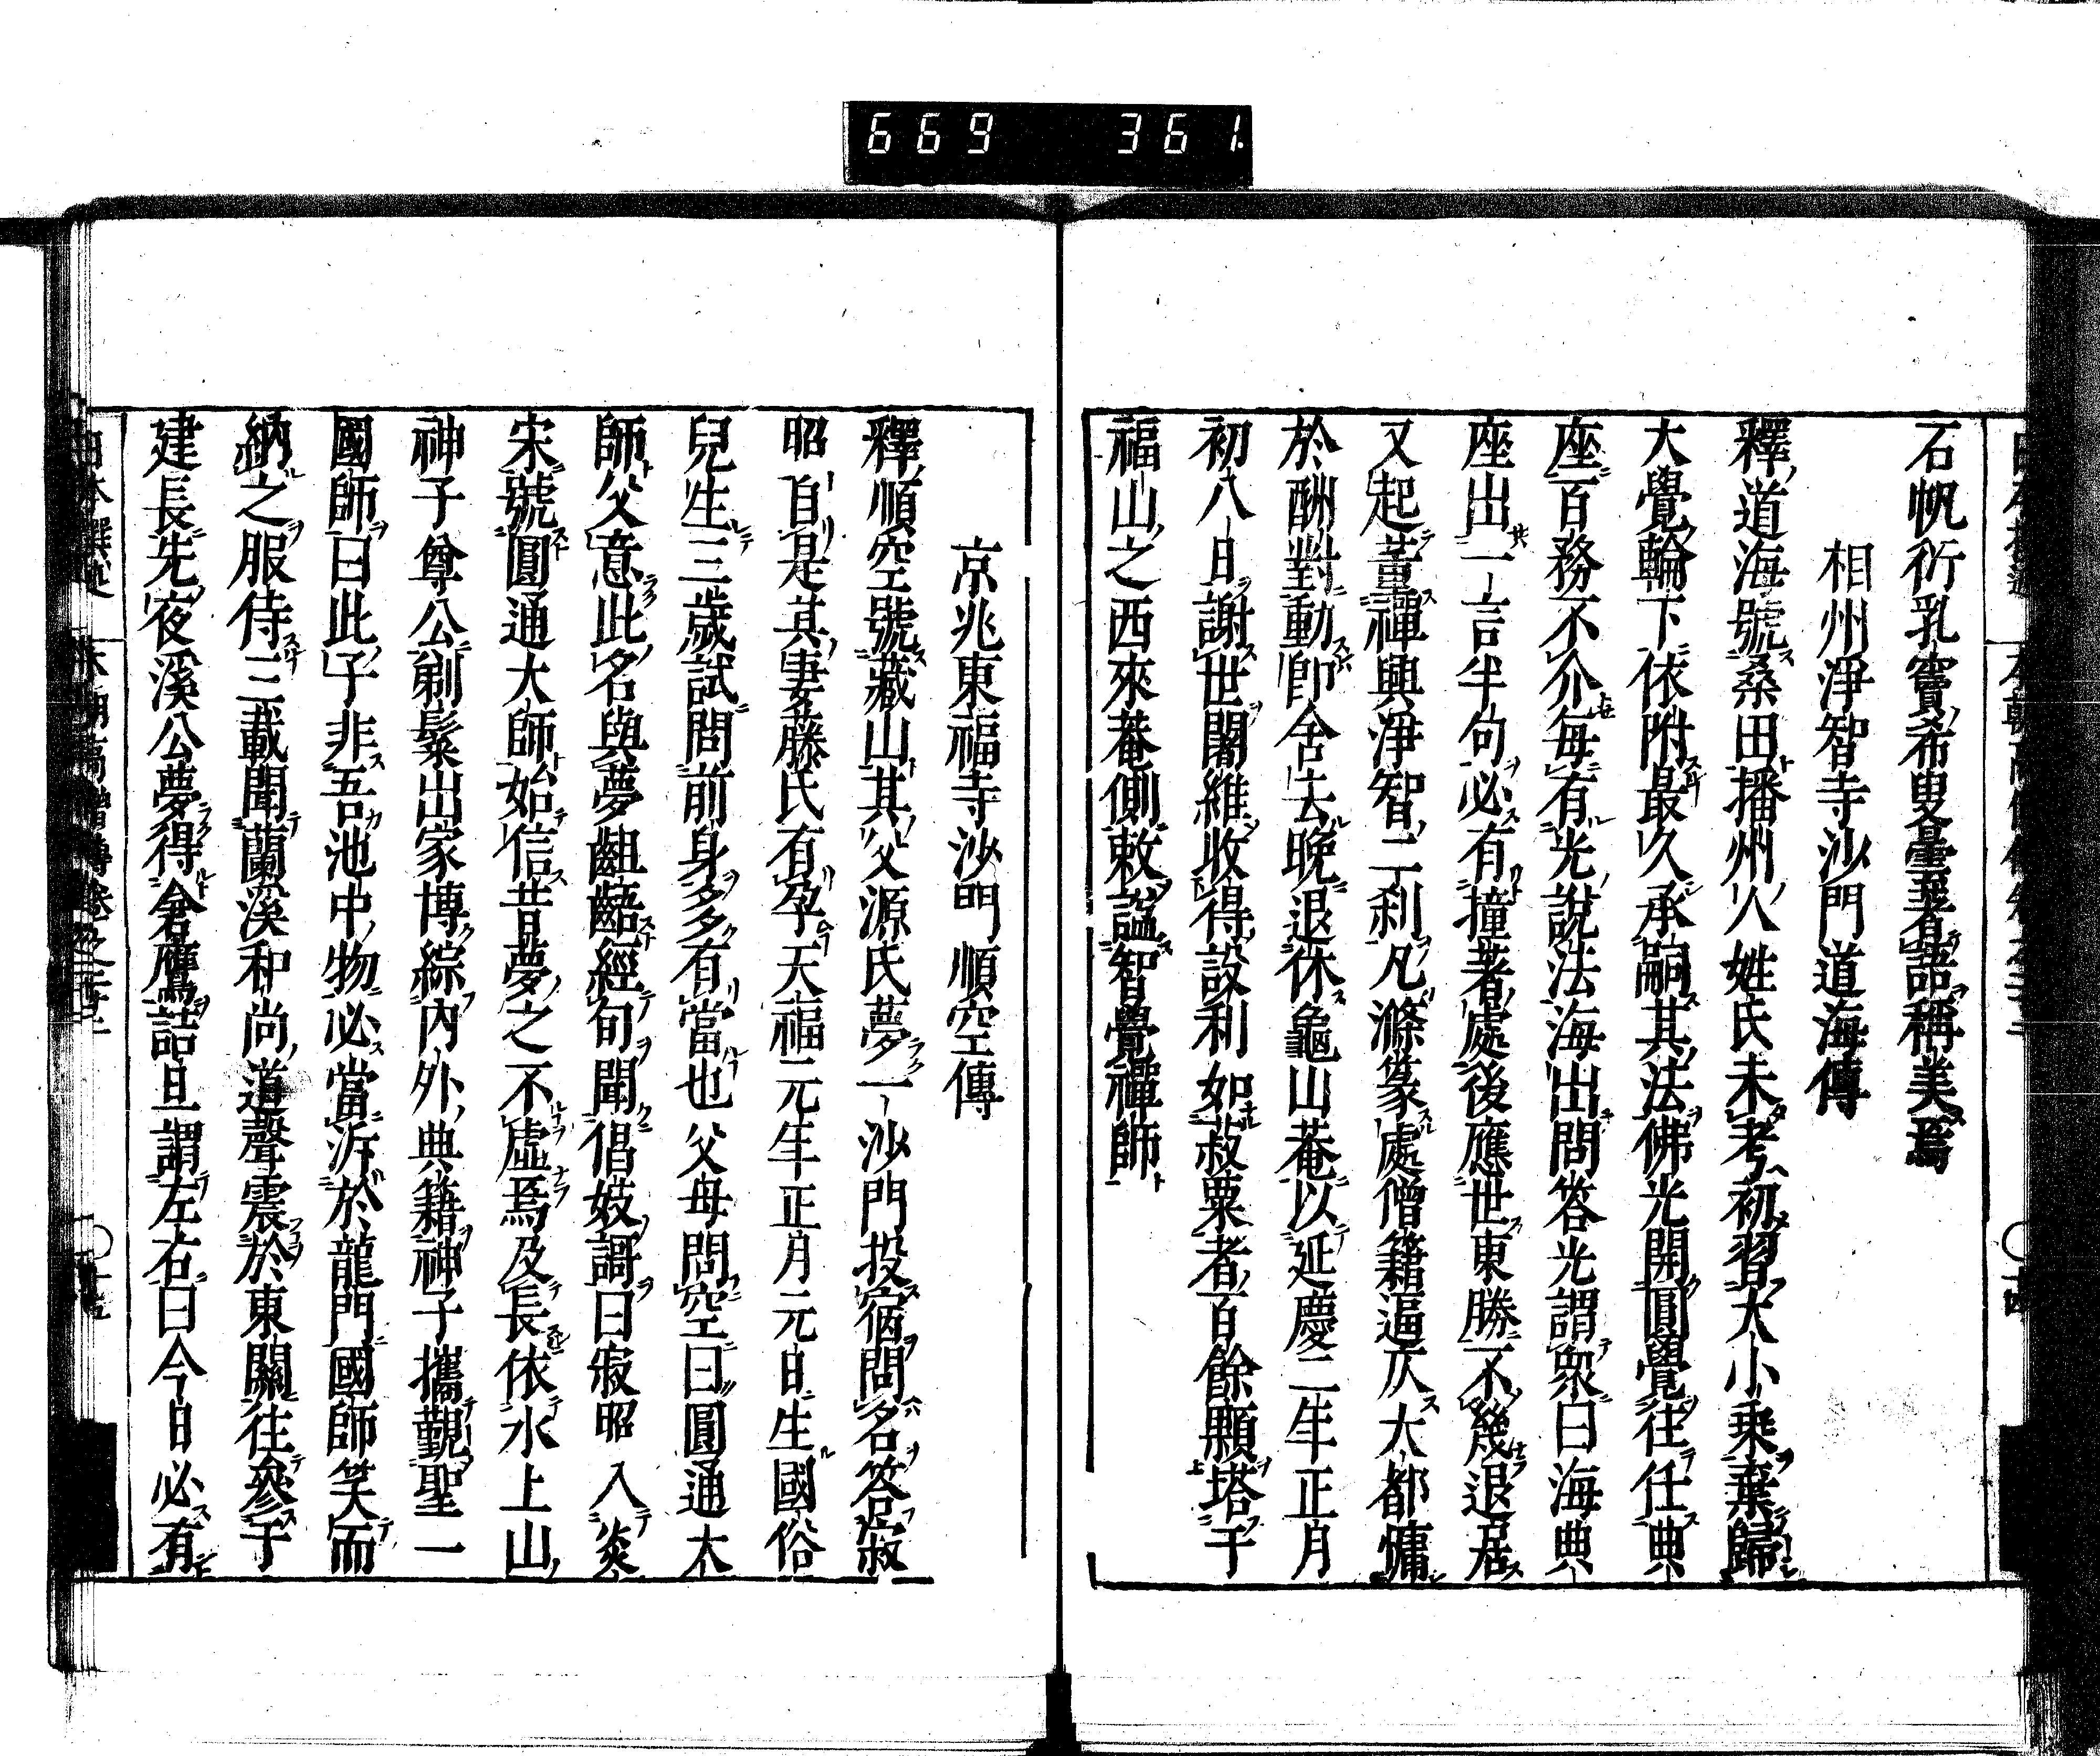 669 361
石帆衍乳竇希叟曇著語稱美焉
相州淨智寺沙門道海傳
釋道海號桑田播州人姓氏未考初習大小乘棄歸
大覺輪下依附最久承嗣其法佛光開圓覺往任典
座百務不介每有光說法海出問答光謂衆曰海典
座出一言半句必有撞著處後應世東勝不幾退居
又起董禪興淨智二刹凡滌篆處僧籍逼仄大都慵
於酬對動卽舍去晚退休龜山菴以延慶二年正月
初八日謝世闍維收得設利如菽粟者百餘顆塔于
福山之西來菴側敕謚智覺禪師
京兆東福寺沙門順空傳
釋順空號藏山其父源氏夢一沙門投宿問名答寂
昭自是其妻藤氏有孕天福元年正月元日生國俗
兒生三歲試問前身多多有當也父母問空曰圓通大
師父意此名與夢齟齬經旬聞倡妓謌曰寂昭入
宋號圓通大師始信昔夢之不虛焉及長依水上山
神子尊公剃髮出家博綜內外典籍神子攜覲聖一
國師曰此子非吾池中物必當泝於龍門國師笑而
納之服侍三載聞蘭溪和尚道聲震於東關往參于
建長先夜溪公夢得倉鷹詰旦謂左右曰今日必有